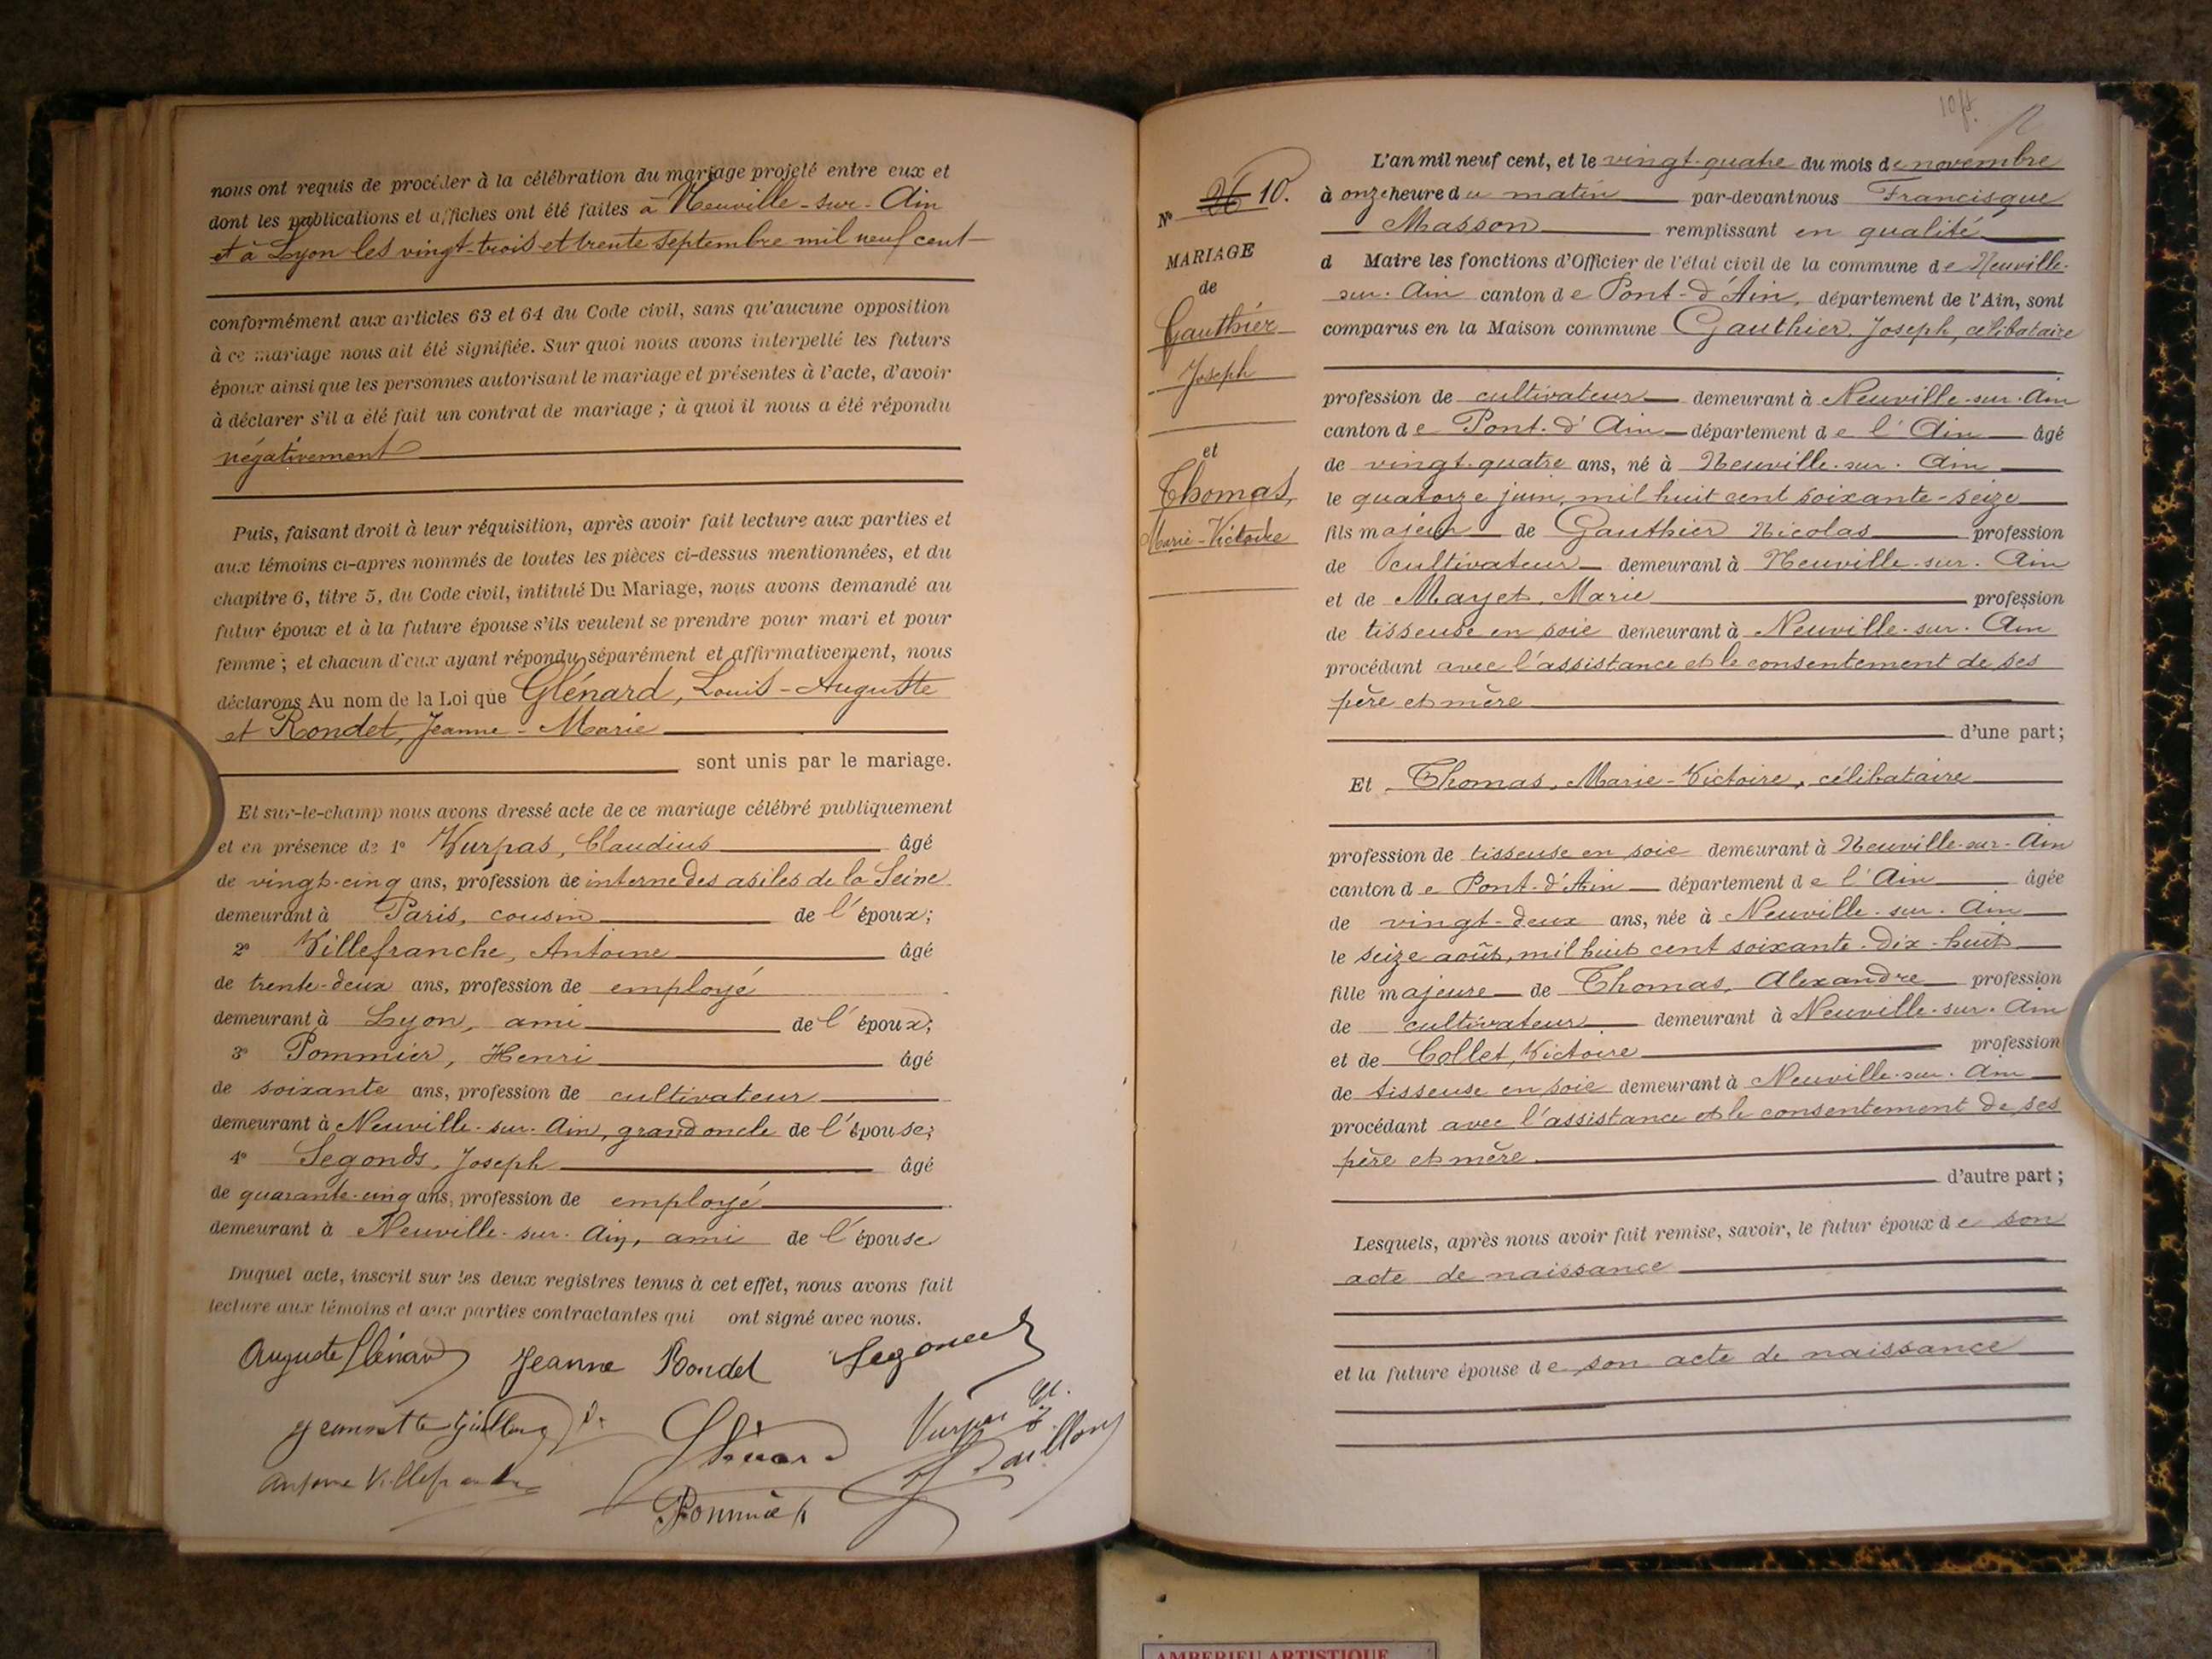 nous ont requis de procéder à la célébration du mariage projeté entre eux et
dont les publications et affiches ont été faites à Neuville-sur-Ain
et à Lyon les vingt-trois et trente septembre mil neuf cent
conformément aux articles 63 et 64 du Code civil, sans qu'aucune opposition
à ce mariage nous ait été signifiée. Sur quoi nous avons interpellé les futurs
époux ainsi que les personnes autorisant le mariage et présentes à l'acte, d'avoir
à déclarer s'il a été fait un contrat de mariage ; à quoi il nous a été répondu
négativement
Puis, faisant droit à leur réquisition, après avoir fait lecture aux parties et
aux témoins ci-apres nommés de toutes les pièces ci-dessus mentionnées, et du
chapitre 6, titre 5, du Code civil, intitulé Du Mariage, nous avons demandé au
futur époux et à la future épouse s'ils veulent se prendre pour mari et pour
femme ; et chacun d'eux ayant répondu séparément et affirmativement, nous
déclarons Au nom de la Loi que Glénard, Louis-Auguste
et Rondet, Jeanne-Marie
sont unis par le mariage.
Et sur-le-champ nous avons dressé acte de ce mariage célébré publiquement
et en présence de 1° Vurpas, Claudius âgé
de vingt-cinq ans, profession de interne des asiles de la Seine
demeurant à Paris, cousin de l'époux;
2° Villefranche, Antoine âgé
de trente-deux ans, profession de employé
demeurant à Lyon, ami de l'époux;
3° Pommier, Henri âgé
de soixante ans, profession de cultivateur
demeurant à Neuville-sur-Ain, grand oncle de l'épouse;
4° Segonds, Joseph âgé
de quarante-cinq ans, profession de employé
demeurant à Neuville-sur-Ain, ami de l'épouse
Duquel acte, inscrit sur les deux registres tenus à cet effet, nous avons fait
lecture aux témoins et aux parties contractantes qui ont signé avec nous.
Auguste Glénard Jeanne Rondet Segonds
Glénard Vurpas Cl.
Antoine Villefranche
Pommier h
N° 10.
MARIAGE
de
Gauthier
Joseph
et
Thomas,
Marie-Victoire
L'an mil neuf cent, et le vingt-quatre du mois de novembre
à onze heure du matin par-devant nous Francisque
Masson remplissant en qualité
d Maire les fonctions d'Officier de l'état civil de la commune de Neuville-
sur-Ain canton de Pont-d'Ain, département de l'Ain, sont
comparus en la Maison commune Gauthier, Joseph, célibataire
profession de cultivateur demeurant à Neuville-sur-Ain
canton de Pont-d'Ain département de l'Ain âgé
de vingt-quatre ans, né à Neuville-sur-Ain
le quatorze juin, mil huit cent soixante-seize
fils majeur de Gauthier Nicolas profession
de cultivateur demeurant à Neuville-sur-Ain
et de Mayet, Marie profession
de tisseuse en soie demeurant à Neuville-sur-Ain
procédant avec l'assistance et le consentement de ses
père et mère
d'une part;
Et Thomas, Marie-Victoire, célibataire
profession de tisseuse en soie demeurant à Neuville-sur-Ain
canton de Pont-d'Ain département de l'Ain âgée
de vingt-deux ans, née à Neuville-sur-Ain
le seize août, mil huit cent soixante-dix-huit
fille majeure de Thomas, Alexandre profession
de cultivateur demeurant à Neuville-sur-Ain
et de Collet, Victoire profession
de tisseuse en soie demeurant à Neuville-sur-Ain
procédant avec l'assistance et le consentement de ses
père et mère
d'autre part ;
Lesquels, après nous avoir fait remise, savoir, le futur époux de son
acte de naissance
et la future épouse de son acte de naissance
AMBERIEU ARTISTIQUE